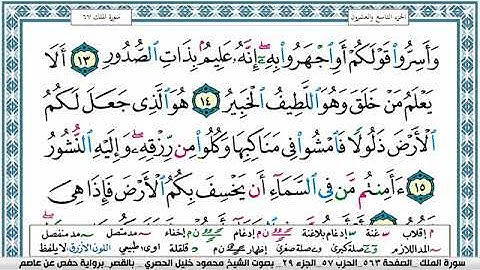 الجزء التاسع والعشرون
سورة الملك ٦٧
وَأَسِرُّوا۟ قَوْلَكُمْ أَوِ ٱجْهَرُوا۟ بِهِۦٓ ۖ إِنَّهُۥ عَلِيمٌۢ بِذَاتِ ٱلصُّدُورِ ١٣ أَلَا
يَعْلَمُ مَنْ خَلَقَ وَهُوَ ٱللَّطِيفُ ٱلْخَبِيرُ ١٤ هُوَ ٱلَّذِى جَعَلَ لَكُمُ
ٱلْأَرْضَ ذَلُولًا فَٱمْشُوا۟ فِى مَنَاكِبِهَا وَكُلُوا۟ مِن رِّزْقِهِۦ ۖ وَإِلَيْهِ ٱلنُّشُورُ
١٥ ءَأَمِنتُم مَّن فِى ٱلسَّمَآءِ أَن يَخْسِفَ بِكُمُ ٱلْأَرْضَ فَإِذَا هِىَ
م إقلاب غنة إدغام بلاغنة إدغام ن م إخفاء مد متصل مد منفصل
مد اللازم صلة كبرى صلة صغرى إظهار ن م قلقلة اوى طبيعي اللون الأزرق لا يلفظ
سورة الملك - الصفحة ٥٦٣ - الحزب ٥٧ - الجزء ٢٩ - بصوت الشيخ محمود خليل الحصري - بالقصر - برواية حفص عن عاصم